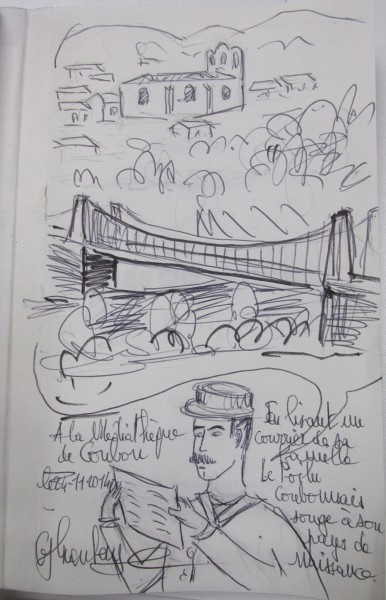 A la Médiathèque
de Coubon
En lisant un
courrier de sa
famille
Le Poilu
Coubonnais
songe à son
pays de
Naissance.